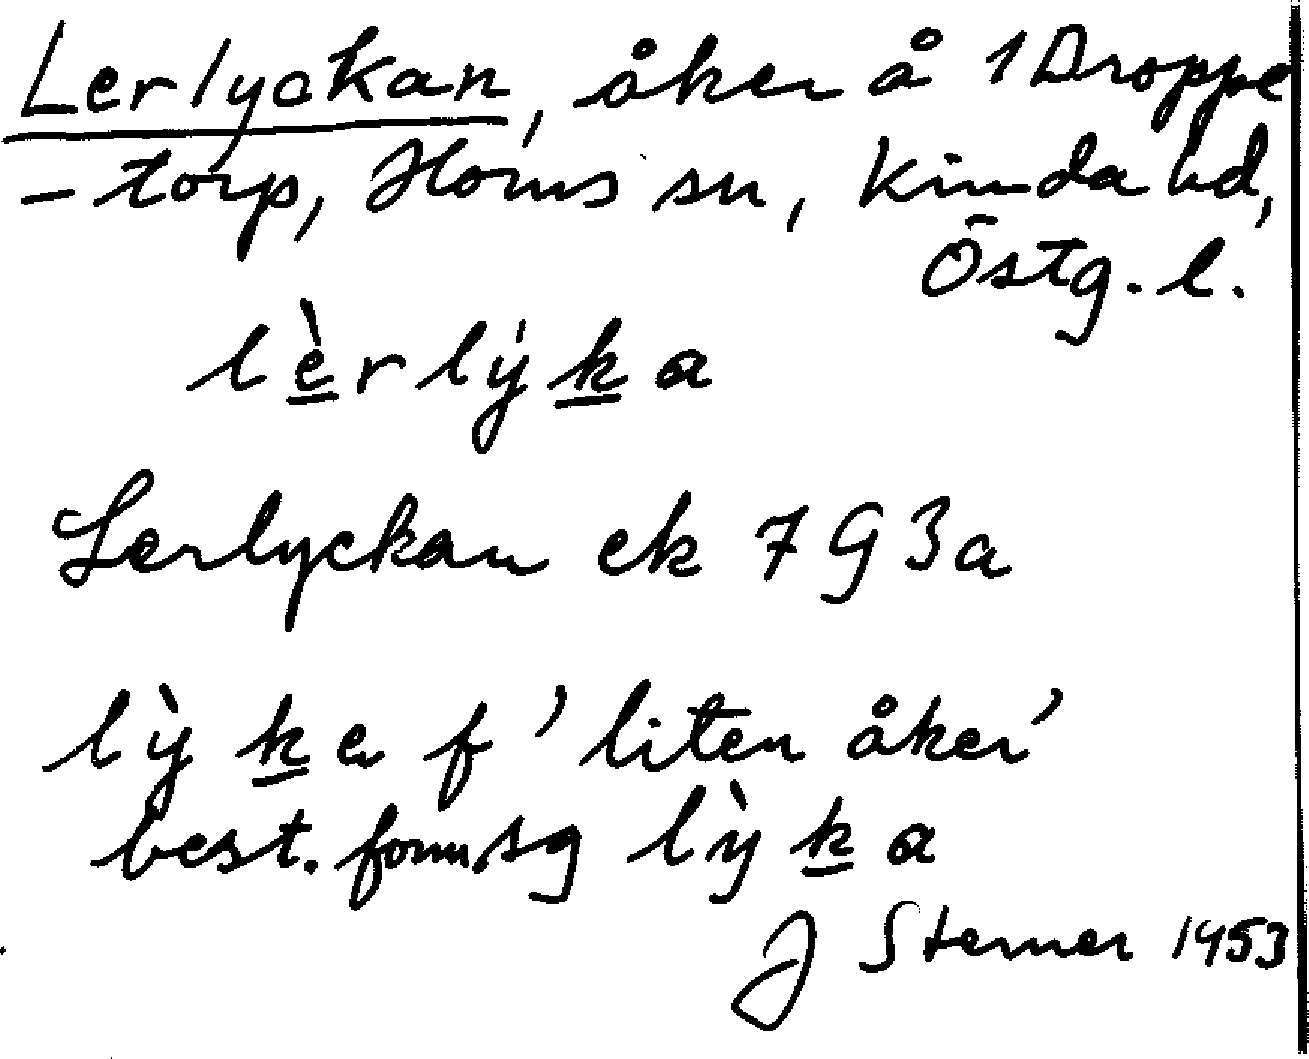 Lerlyckan, åker å 1 Droppe
- torp, Horns sn, Kinda hd,
Östg. l.
lèrlýka
Lerlyckan ek 7 G 3a
lỳka f 'liten åker'
best. form sg lỳka
J Sterner 1953